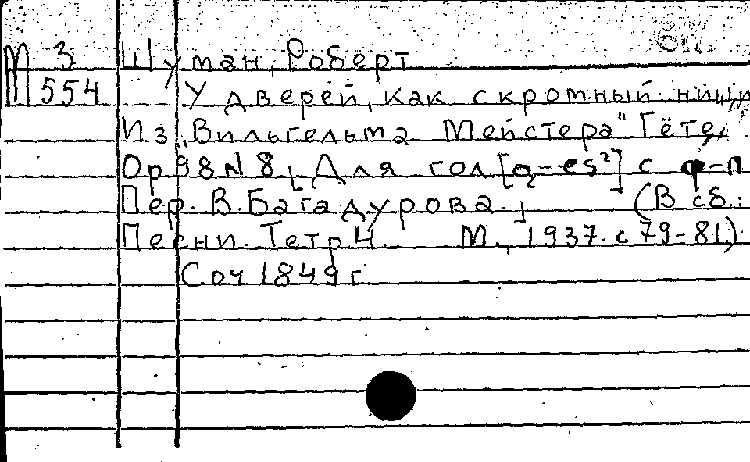 М 3 Шуман, Роберт
М 554 У дверей, как скромный нищи
Из „Вильгельма Мейстера" Гёте,
Op 98 N 8, Для гол [g-es²] с ф-п
Пер. В. Багадурова. (В сб.:
Песни. Тетр 4. М., 1937. с 79-81)
Соч 1849 г